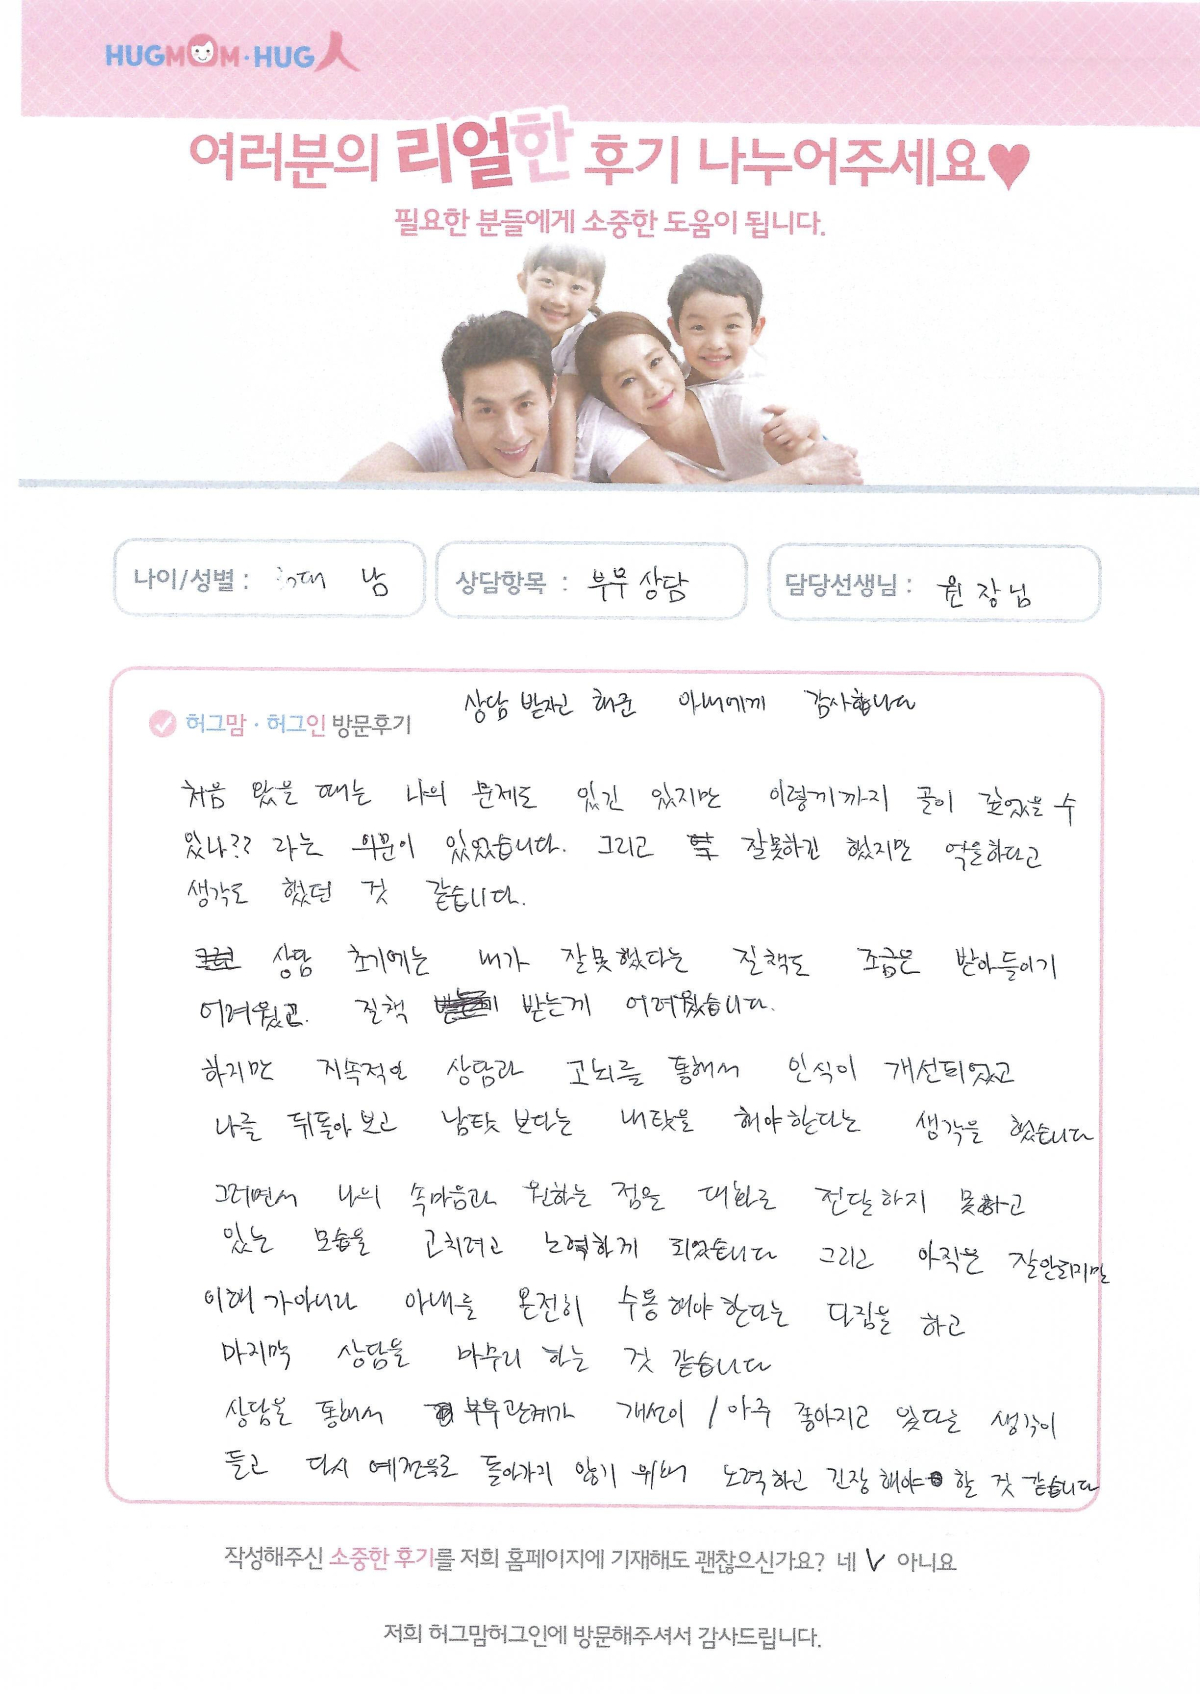 HUGMOM·HUG人
여러분의 리얼한 후기 나누어주세요♥
필요한 분들에게 소중한 도움이 됩니다.
나이/성별 : 대 남
상담항목 : 부부상담
담당선생님 : 원장님
상담 받자고 해준 아내에게 감사합니다
허그맘·허그인 방문후기
처음 왔을 때는 나의 문제도 있긴 있지만 이렇게까지 골이 깊었을 수
있나?? 라는 의문이 있었습니다. 그리고 잘못하긴 했지만 억울하다고
생각도 했던 것 같습니다.
상담 초기에는 내가 잘못했다는 질책도 조금은 받아들이기
어려웠고. 질책 받는게 어려웠습니다.
하지만 지속적인 상담과 고뇌를 통해서 인식이 개선되었고
나를 뒤돌아보고 남탓 보다는 내탓을 해야한다는 생각을 했습니다
그러면서 나의 속마음과 원하는 점을 대화로 전달하지 못하고
있는 모습을 고치려고 노력하게 되었습니다 그리고 아직은 잘안되지만
이해가아니라 아내를 온전히 수용해야한다는 다짐을 하고
마지막 상담을 마무리 하는 것 같습니다
상담을 통해서 부부관계가 개선이 / 아주 좋아지고 있다는 생각이
들고 다시 예전으로 돌아가지 않기 위해 노력하고 긴장해야 할 것 같습니다
작성해주신 소중한 후기를 저희 홈페이지에 기재해도 괜찮으신가요? 네 V 아니요
저희 허그맘허그인에 방문해주셔서 감사드립니다.